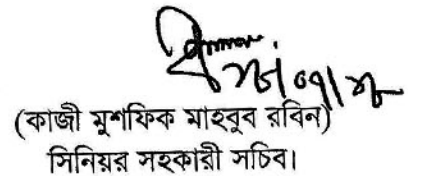 (কাজী মুশফিক মাহবুব রবিন)
সিনিয়র সহকারী সচিব।